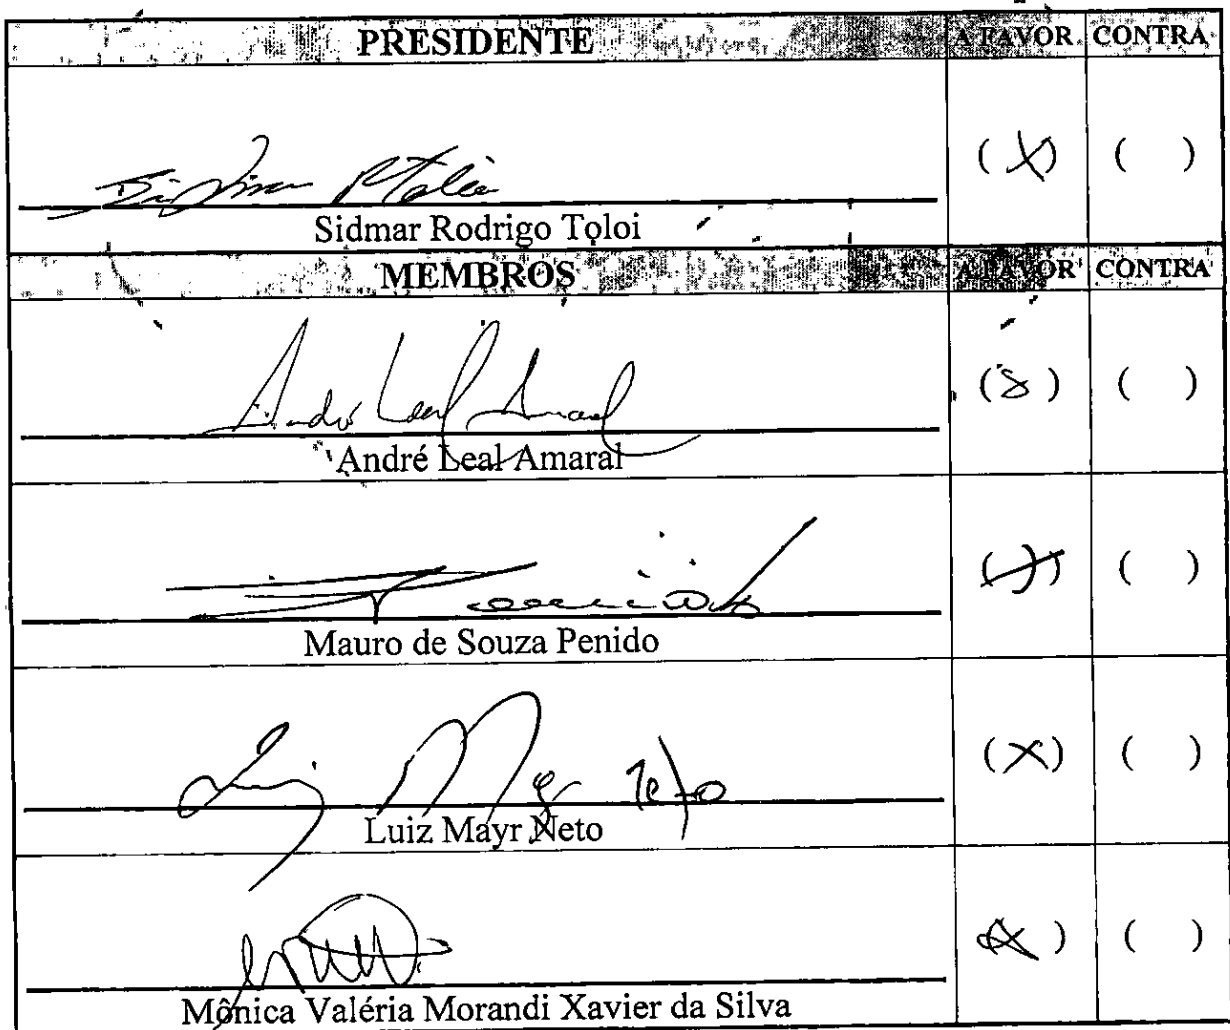 PRESIDENTE A FAVOR CONTRA
(X) ( )
Sidmar Rodrigo Toloi
MEMBROS A FAVOR CONTRA
André Leal Amaral (X) ( )
André Leal Amaral
(X) ( )
Mauro de Souza Penido
Luiz Mayr Neto (X) ( )
Luiz Mayr Neto
(X) ( )
Mônica Valéria Morandi Xavier da Silva